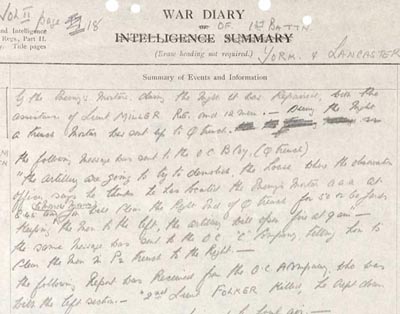 Vol II page 18
and Intelligence
Regs., Part II.
Title pages
WAR DIARY
OF 1st BATTN
INTELLIGENCE SUMMARY
(Erase heading not required.)
YORK. & LANCASTER
Summary of Events and Information
by the Enemy's Mortar during the Night it was Repaired, with the
assistance of Lieut MILLER R.E. and 12 men. — During the Night
a Trench Mortar was sent up to Q Trench.
the following message was sent to the O.C. B Coy. (Q Trench)
"The artillery are going to try to demolish the house where the observation
officer says he thinks he has located the Enemy's Mortar a a a at
8.45 you will clear the Right End of Q Trench for 50 or 60 yards
Keeping the men to the left, the artillery will open fire at 9 am —
the same message was sent to the O.C. "C" Company telling him to
Clear the men in P2 Trench to the Right —
the following Report was Received from the O.C. A Company, who was
with the left section — "2nd Lieut FOLKER Killed, he kept down